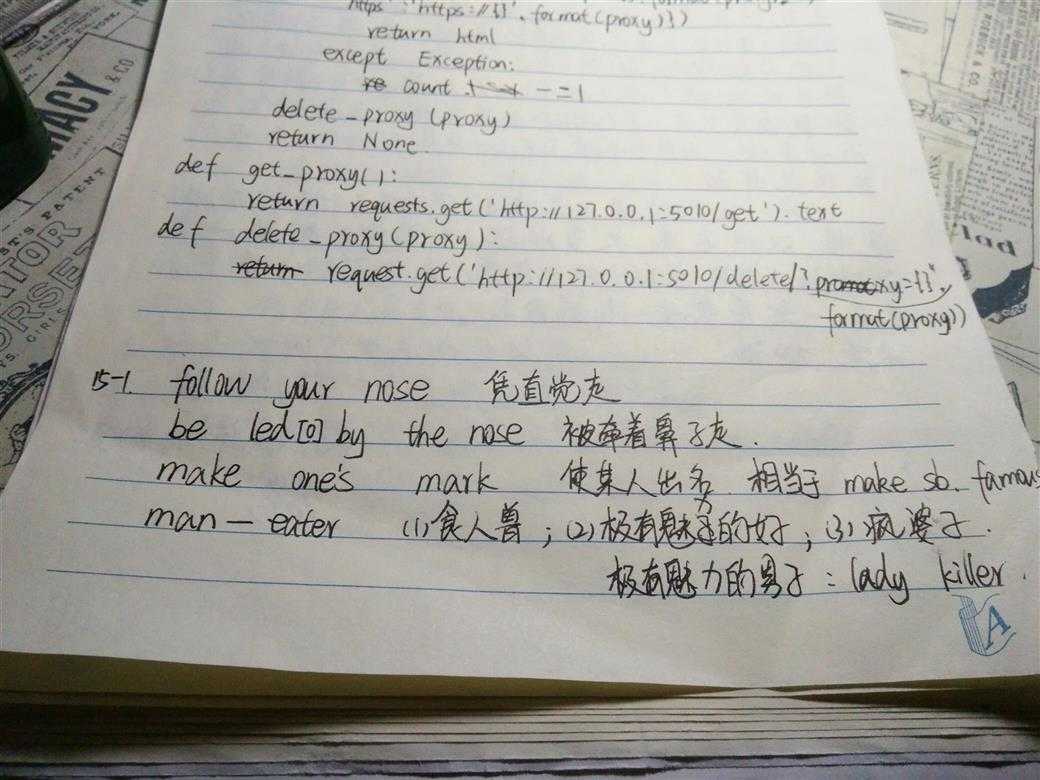 https' : 'https://{}'.format(proxy)})
return html
except Exception:
count -=1
delete_proxy (proxy)
return None.
def get_proxy():
return requests.get('http://127.0.0.1:5010/get').text
def delete_proxy(proxy):
return request.get('http://127.0.0.1:5010/delete/?proxy={}".
format(proxy))
15-1. follow your nose 凭直觉走
be led[o] by the nose 被牵着鼻子走.
make one's mark 使某人出名. 相当于 make sb. famous
man-eater (1)食人兽; (2)极有魅力的女子; (3)疯婆子.
极有魅力的男子: lady killer.
A
PHARMACY & CO
PATENT
CORSET